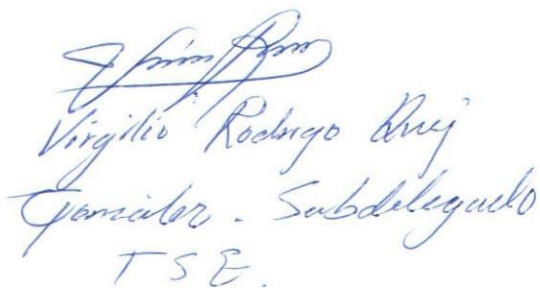 Virgilio Rodrigo Ruiz
González. Subdelegado
TSE.